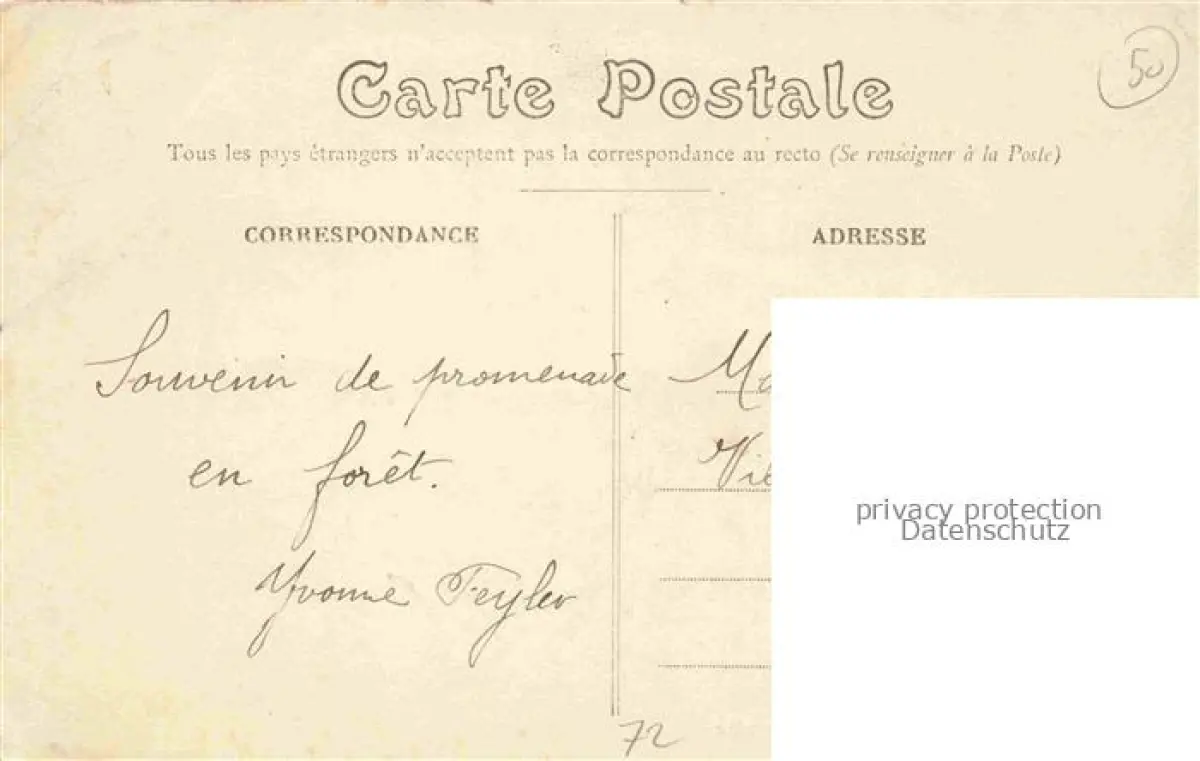 Carte Postale
50
Tous les pays étrangers n'acceptent pas la correspondance au recto (Se renseigner à la Poste)
CORRESPONDANCE
Souvenir de promenade
en forêt.
Yvonne Feyler
72
ADRESSE
privacy protection
Datenschutz